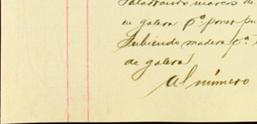 marcos de
en galera pº. poner
Subiendo madera pª.
de galera
al número